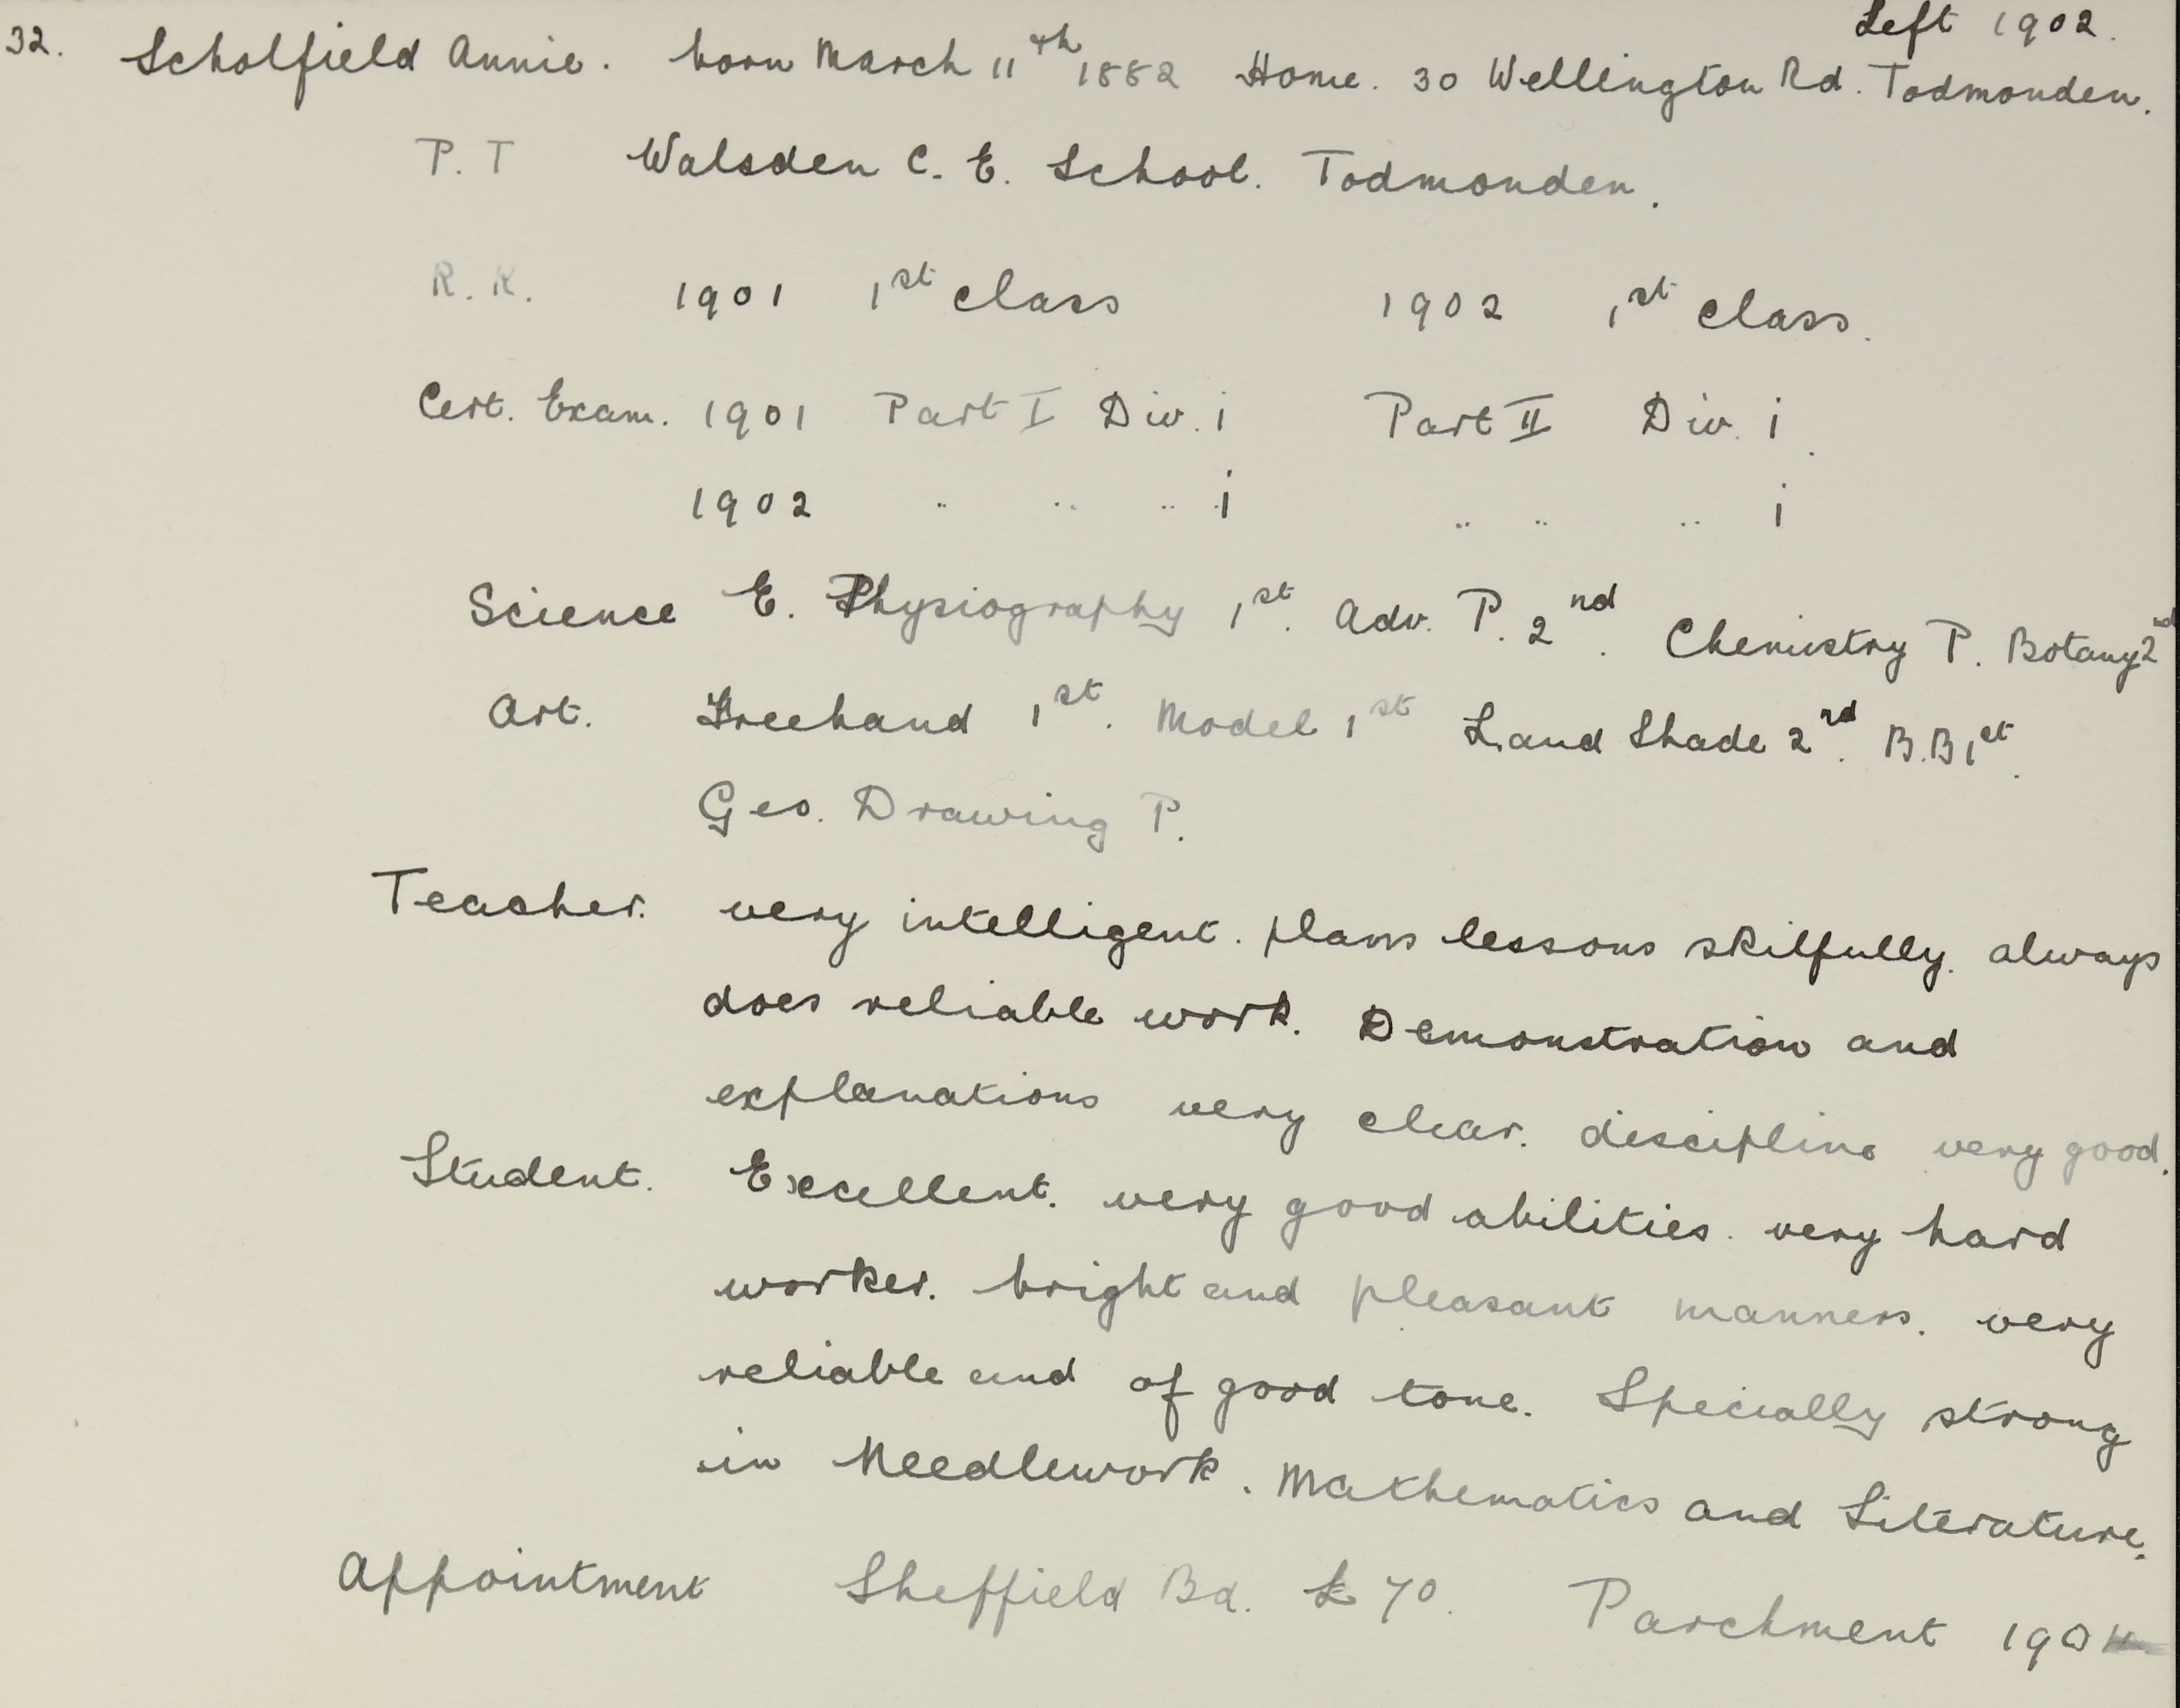 Left 1902.
32. Scholfield Annie. born March 11th 1882 Home. 30 Wellington Rd. Todmonden.
P.T Walsden C. E. School. Todmonden.
R.K. 1901 1st class 1902 1st class.
Cert. Exam. 1901 Part I Div. i Part II Div. i.
1902 .. .. .. i .. .. .. i
Science E. Physiography 1st. Adv. P. 2nd. Chemistry P. Botany 2nd
Art. Freehand 1st. Model 1st L. and Shade 2nd. B.B 1st.
Geo. Drawing P.
Teacher. very intelligent. plans lessons skilfully. always
does reliable work. Demonstration and
explanations very clear. discipline very good.
Student. Excellent. very good abilities. very hard
worker. bright and pleasant manners. very
reliable and of good tone. Specially strong
in Needlework. Mathematics and Literature.
Appointment Sheffield Bd. £70. Parchment 1904